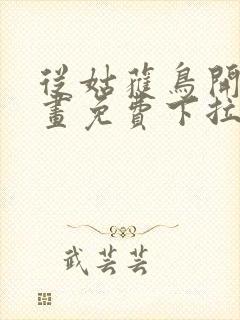 從姑蔱鳥開
畫免費下拉
武芸芸